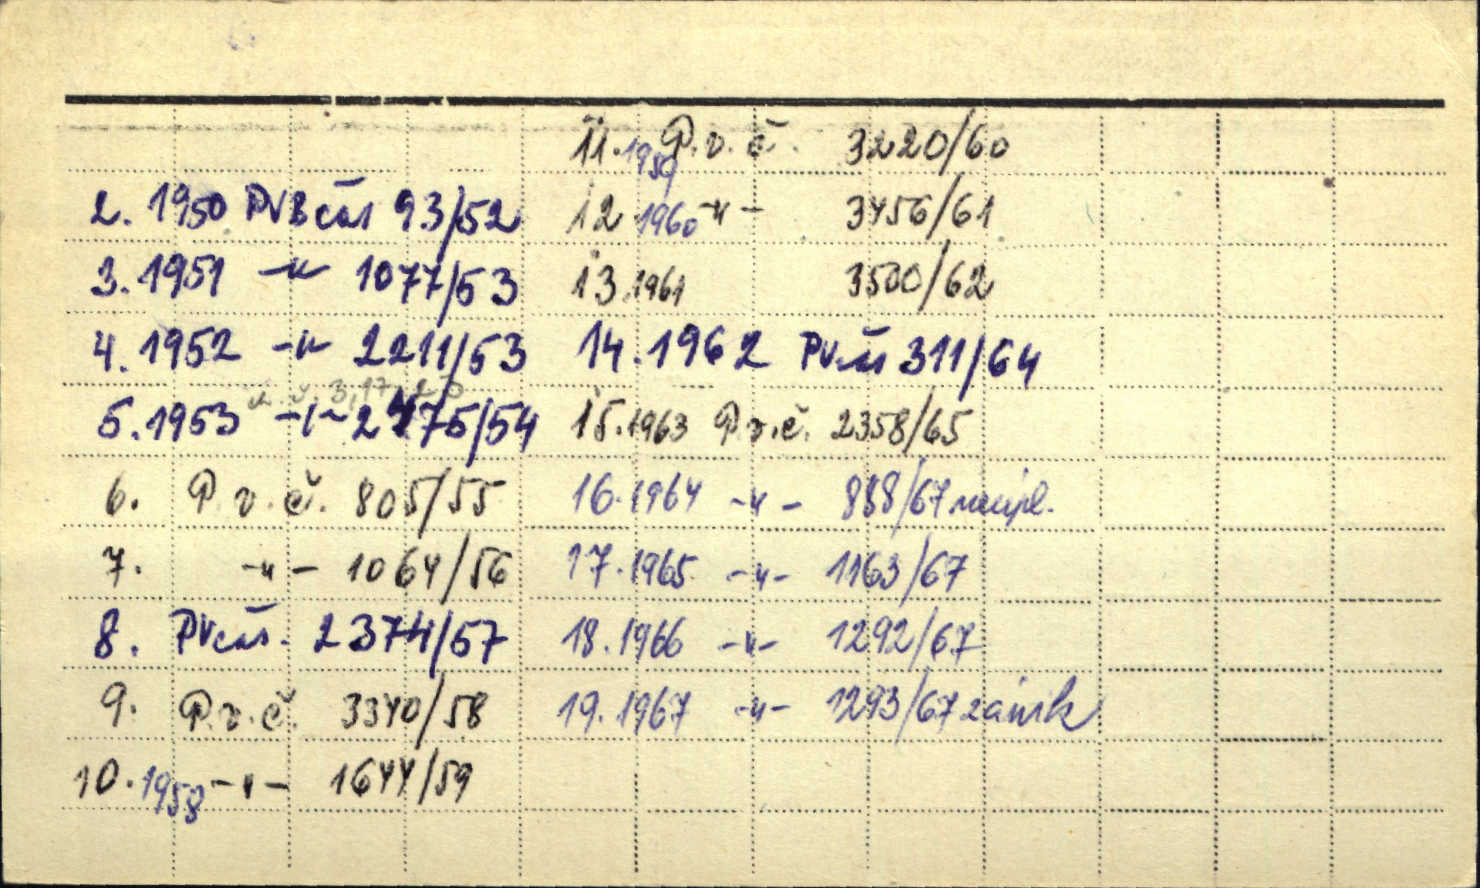 2. 1950 PVB čas 93/52
3. 1951 -"- 1077/53
4. 1952 -"- 2211/53
5. 1953 -"- 2475/54
6. P. v. č. 805/55
7. -"- 1064/56
8. PV čas. 2374/57
9. P. v. č. 3340/58
10. 1958 -"- 1644/59
11. 1959 P. v. č. 3220/60
12 1960 -"- 3456/61
13 1961 3500/62
14. 1962 PV čas 311/64
15. 1963 P. v. č. 2358/65
16. 1964 -"- 888/67 neúpl.
17. 1965 -"- 1163/67
18. 1966 -"- 1292/67
19. 1967 -"- 1293/67 zánik